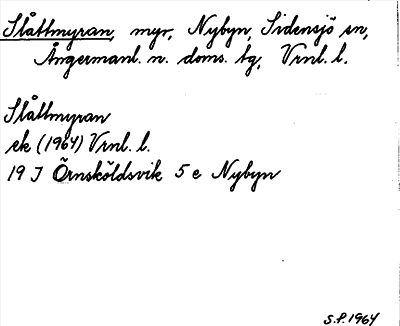 Slåttmyran, myr, Nybyn, Sidensjö sn,
Ångermanl. n. doms. tg, Vrnl. l.
Slåttmyran
ek (1964) Vrnl. l.
19 J Örnsköldsvik 5 e Nybyn
S.P. 1964